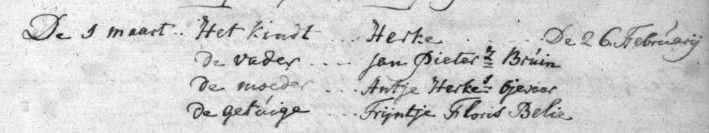 De 1 maart .. Het kindt .... Herke ...... De 26 Februarij
de vader .... Jan Pieterz Bruin
de moeder .... Antje Herkes
de getuige .... Trijntje Floris Belie